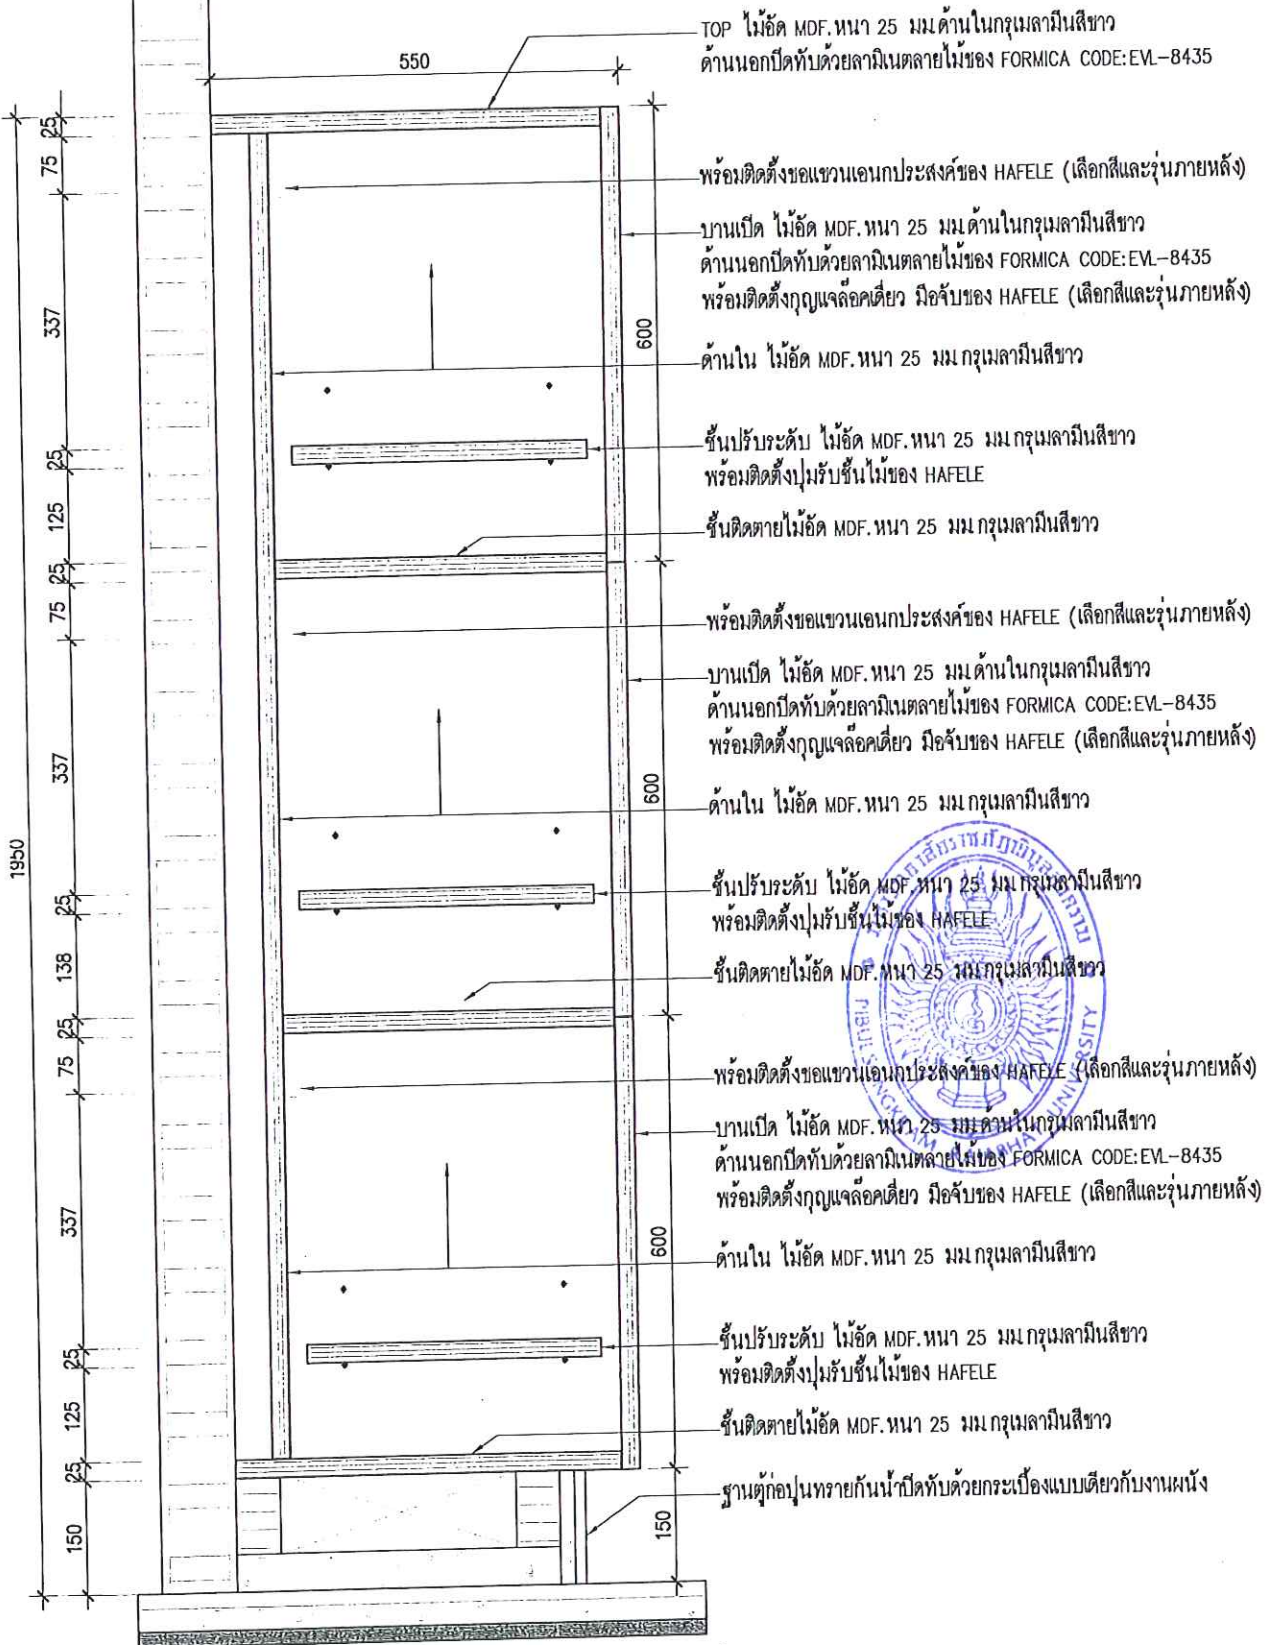 TOP ไม้อัด MDF.หนา 25 มม.ด้านในกรุเมลามีนสีขาว
ด้านนอกปิดทับด้วยลามิเนตลายไม้ของ FORMICA CODE:EVL-8435
550
25
75
337
25
125
25
75
337
25
138
25
75
337
25
125
25
150
1950
600
600
600
150
พร้อมติดตั้งขอแขวนเอนกประสงค์ของ HAFELE (เลือกสีและรุ่นภายหลัง)
บานเปิด ไม้อัด MDF.หนา 25 มม.ด้านในกรุเมลามีนสีขาว
ด้านนอกปิดทับด้วยลามิเนตลายไม้ของ FORMICA CODE:EVL-8435
พร้อมติดตั้งกุญแจล๊อคเดี่ยว มือจับของ HAFELE (เลือกสีและรุ่นภายหลัง)
ด้านใน ไม้อัด MDF.หนา 25 มม.กรุเมลามีนสีขาว
ชั้นปรับระดับ ไม้อัด MDF.หนา 25 มม.กรุเมลามีนสีขาว
พร้อมติดตั้งปุ่มรับชั้นไม้ของ HAFELE
ชั้นติดตายไม้อัด MDF.หนา 25 มม.กรุเมลามีนสีขาว
พร้อมติดตั้งขอแขวนเอนกประสงค์ของ HAFELE (เลือกสีและรุ่นภายหลัง)
บานเปิด ไม้อัด MDF.หนา 25 มม.ด้านในกรุเมลามีนสีขาว
ด้านนอกปิดทับด้วยลามิเนตลายไม้ของ FORMICA CODE:EVL-8435
พร้อมติดตั้งกุญแจล๊อคเดี่ยว มือจับของ HAFELE (เลือกสีและรุ่นภายหลัง)
ด้านใน ไม้อัด MDF.หนา 25 มม.กรุเมลามีนสีขาว
ชั้นปรับระดับ ไม้อัด MDF.หนา 25 มม.กรุเมลามีนสีขาว
พร้อมติดตั้งปุ่มรับชั้นไม้ของ HAFELE
ชั้นติดตายไม้อัด MDF.หนา 25 มม.กรุเมลามีนสีขาว
พร้อมติดตั้งขอแขวนเอนกประสงค์ของ HAFELE (เลือกสีและรุ่นภายหลัง)
บานเปิด ไม้อัด MDF.หนา 25 มม.ด้านในกรุเมลามีนสีขาว
ด้านนอกปิดทับด้วยลามิเนตลายไม้ของ FORMICA CODE:EVL-8435
พร้อมติดตั้งกุญแจล๊อคเดี่ยว มือจับของ HAFELE (เลือกสีและรุ่นภายหลัง)
ด้านใน ไม้อัด MDF.หนา 25 มม.กรุเมลามีนสีขาว
ชั้นปรับระดับ ไม้อัด MDF.หนา 25 มม.กรุเมลามีนสีขาว
พร้อมติดตั้งปุ่มรับชั้นไม้ของ HAFELE
ชั้นติดตายไม้อัด MDF.หนา 25 มม.กรุเมลามีนสีขาว
ฐานตู้ก่อปูนทรายกันน้ำปิดทับด้วยกระเบื้องแบบเดียวกับงานผนัง
PIBULSONGKRAM RAJABHAT UNIVERSITY